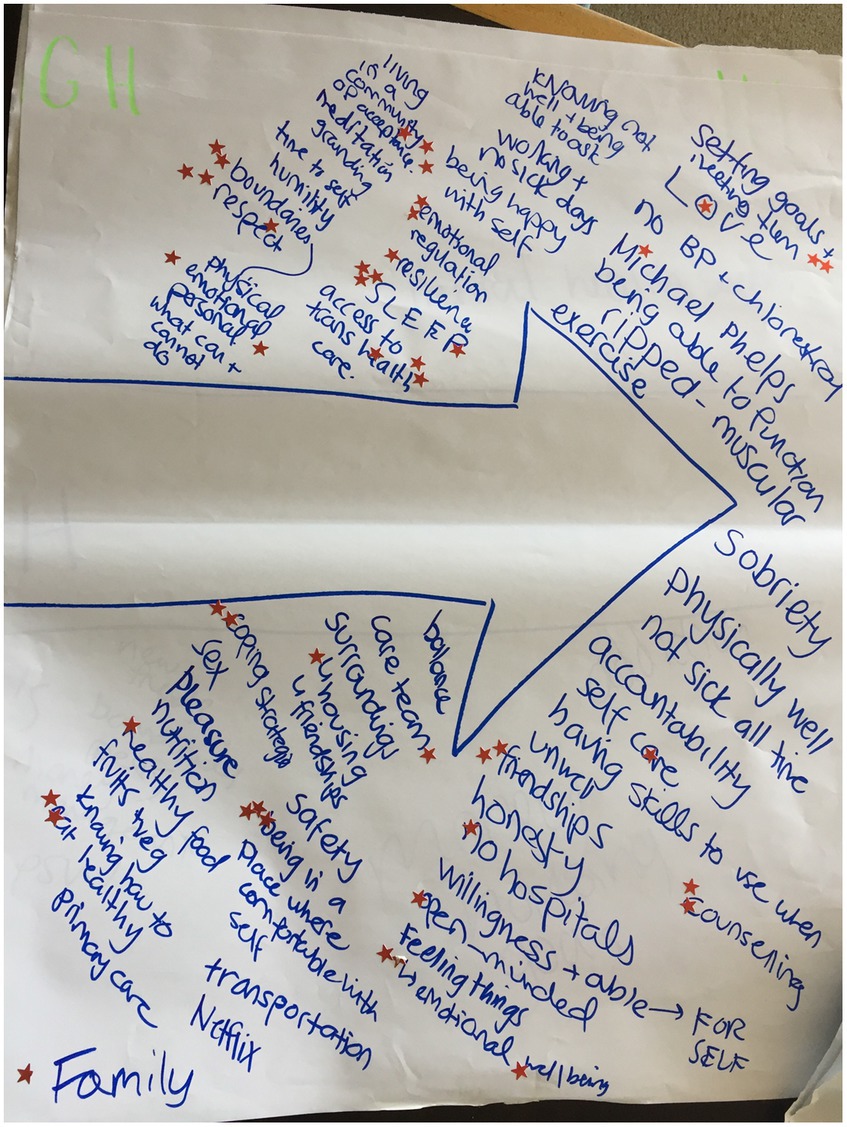 GH
living
is a
community
of acceptance.
meditation
grounding
time to self
humility
boundaries
respect
physical
emotional
personal
what can +
cannot
do
knowing not
well + being
able to ask
working +
no sick days
being happy
with self
emotional
regulation
resilience
SLEEP
access to
trans health
care.
setting goals +
meeting them
LOVE
no BP + chlorestrol
Michael Phelps
being able to function
ripped - muscular
exercise
Sobriety
physically well
not sick all time
accountability
self care
having skills to use when
unwell
friendships
counselling
honesty
no hospitals
willingness + able → FOR
SELF
open-minded
Feeling things
emotional wellbeing
balance
care team
surroundings
housing
friendships
coping strategies
sex
pleasure
nutrition
healthy food
fruits + veg
knowing how to
eat healthy
primary care
safety
being in a
place where
comfortable with
self
transportation
Netflix
Family